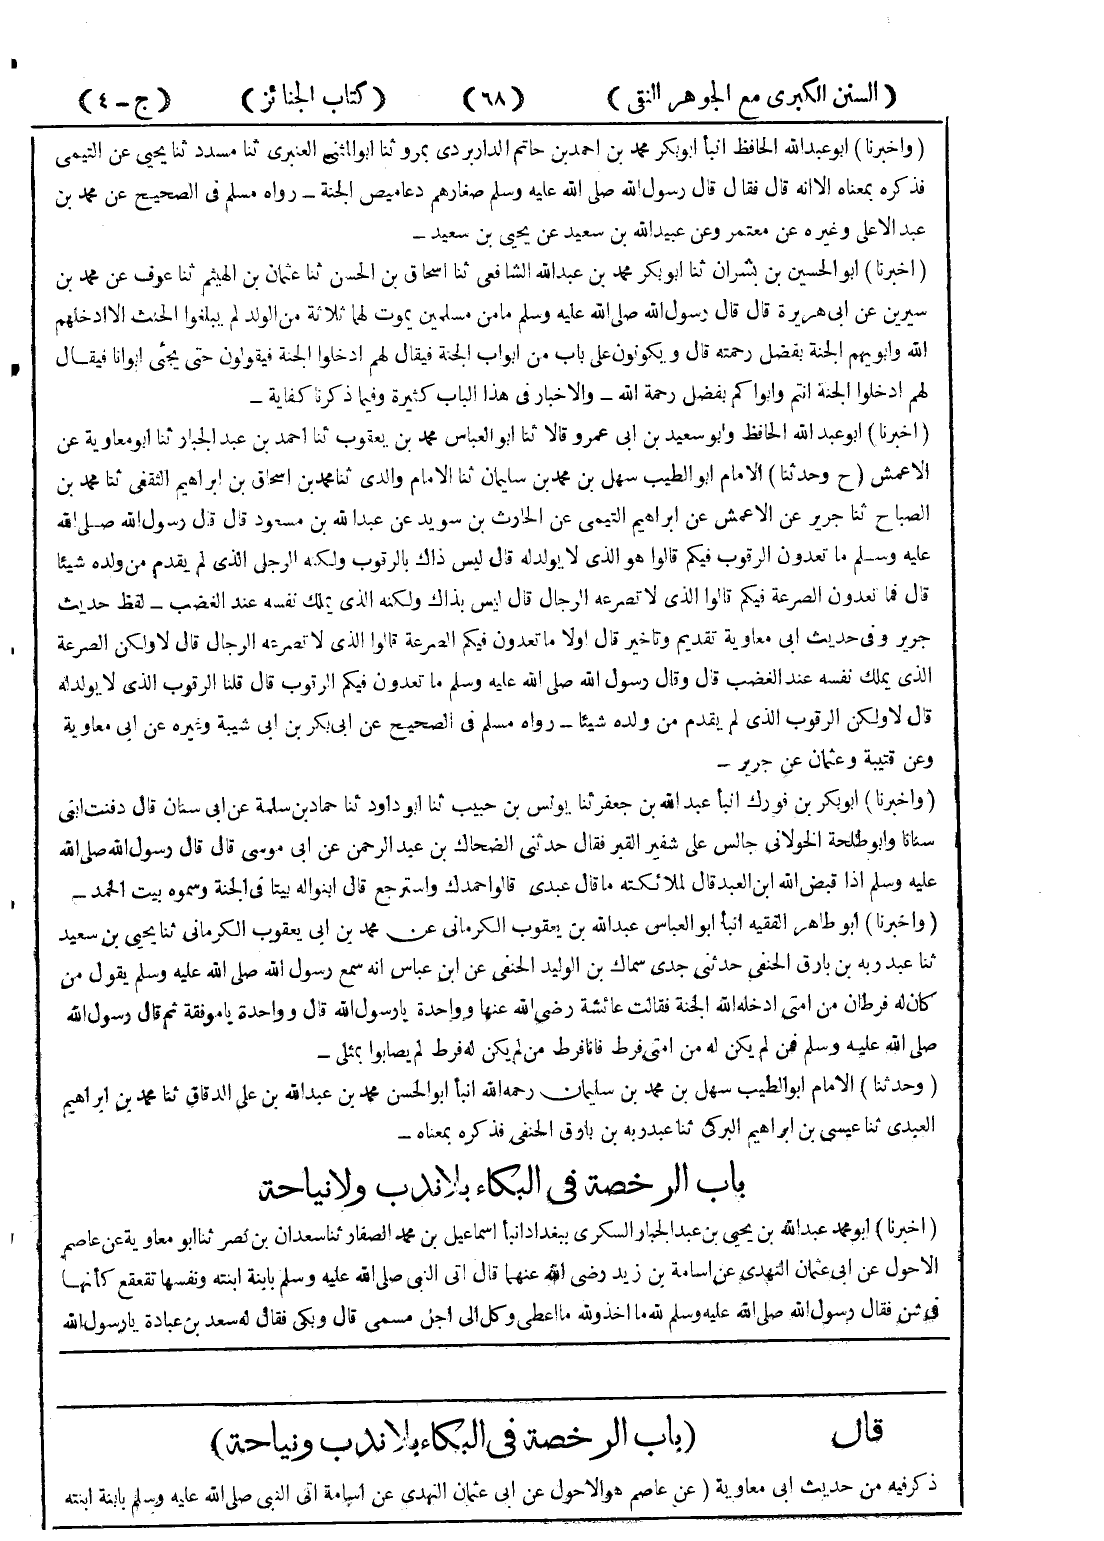 ( السنن الكبرى مع الجوهر النقى ) ( ٦٨ ) ( كتاب الجنائز ) ( ج - ٤ )
( واخبرنا ) ابوعبدالله الحافظ انبأ ابوبكر محمد بن احمدبن حاتم الداربردى بمرو ثنا ابوالمثنى العنبرى ثنا مسدد ثنا يحيى عن التيمى
فذكره بمعناه الاانه قال فقال قال رسول الله صلى الله عليه وسلم صغارهم دعاميص الجنة ـ رواه مسلم فى الصحيح عن محمد بن
عبد الاعلى وغيره عن معتمر وعن عبيدالله بن سعيد عن يحيى بن سعيد ـ
( اخبرنا ) ابوالحسين بن بشران ثنا ابوبكر محمد بن عبدالله الشافعى ثنا اسحاق بن الحسن ثنا عثمان بن الهيثم ثنا عوف عن محمد بن
سيرين عن ابى هريرة قال قال رسول الله صلى الله عليه وسلم مامن مسلمين يموت لهما ثلاثة من الولد لم يبلغوا الحنث الاادخلهم
الله وابويهم الجنة بفضل رحمته قال ويكونون على باب من ابواب الجنة فيقال لهم ادخلوا الجنة فيقولون حتى يجئى ابوانا فيقال
لهم ادخلوا الجنة انتم وابواكم بفضل رحمة الله ـ والاخبار فى هذا الباب كثيرة وفيما ذكرنا كفاية ـ
( اخبرنا ) ابوعبد الله الحافظ وابو سعيد بن ابى عمرو قالا ثنا ابو العباس محمد بن يعقوب ثنا احمد بن عبد الجبار ثنا ابومعاوية عن
الاعمش ( ح وحدثنا ) الامام ابوالطيب سهل بن محمدبن سليمان ثنا الامام والدى ثنامحمدبن اسحاق بن ابراهيم الثقفى ثنا محمد بن
الصباح ثنا جرير عن الاعمش عن ابراهيم التيمى عن الحارث بن سويد عن عبدالله بن مسعود قال قال رسول الله صلى الله
عليه وسلم ما تعدون الرقوب فيكم قالوا هو الذى لا يولدله قال ليس ذاك بالرقوب ولكنه الرجل الذى لم يقدم من ولده شيئا
قال فما تعدون الصرعة فيكم قالوا الذى لا تصرعه الرجال قال ليس بذاك ولكنه الذى يملك نفسه عند الغضب ـ لفظ حديث
جرير وفى حديث ابى معاوية تقديم وتاخير قال اولا ما تعدون فيكم الصرعة قالوا الذى لا تصرعه الرجال قال لا ولكن الصرعة
الذى يملك نفسه عند الغضب قال وقال رسول الله صلى الله عليه وسلم ما تعدون فيكم الرقوب قال قلنا الرقوب الذى لا يولدله
قال لا ولكن الرقوب الذى لم يقدم من ولده شيئا ـ رواه مسلم فى الصحيح عن ابى بكر بن ابى شيبة وغيره عن ابى معاوية
وعن قتيبة وعثمان عن جرير ـ
( واخبرنا ) ابوبكر بن فورك انبأ عبد الله بن جعفر ثنا يونس بن حبيب ثنا ابو داود ثنا حمادبن سلمة عن ابى سنان قال دفنت ابنى
سنانا وابو طلحة الخولانى جالس على شفير القبر فقال حدثنى الضحاك بن عبد الرحمن عن ابى موسى قال قال رسول الله صلى الله
عليه وسلم اذا قبض الله ابن العبد قال لملائكته ماقال عبدى قالواحمدك واسترجع قال ابنواله بيتا فى الجنة وسموه بيت الحمد ـ
( واخبرنا ) ابو طاهر الفقيه انبأ ابوالعباس عبدالله بن يعقوب الكرمانى عن محمد بن ابى يعقوب الكرمانى ثنا يحيى بن سعيد
ثنا عبد ربه بن بارق الحنفى حدثنى جدى سماك بن الوليد الحنفى عن ابن عباس انه سمع رسول الله صلى الله عليه وسلم يقول من
كان له فرطان من امتى ادخله الله الجنة فقالت عائشة رضى الله عنها وواحدة يارسول الله قال وواحدة ياموفقة ثم قال رسول الله
صلى الله عليه وسلم فمن لم يكن له من امتى فرط فانا فرط من لم يكن له فرط لم يصابوا بمثلى ـ
( وحدثنا ) الامام ابوالطيب سهل بن محمد بن سليمان رحمه الله انبأ ابوالحسن محمد بن عبدالله بن على الدقاق ثنا محمد بن ابراهيم
العبدى ثنا عيسى بن ابراهيم البركى ثنا عبدربه بن بارق الحنفى فذكره بمعناه ـ
باب الرخصة فى البكاء بلاندب ولانياحة
( اخبرنا ) ابومحمد عبدالله بن يحيى بن عبدالجبار السكرى ببغداد انبأ اسماعيل بن محمد الصفار ثنا سعدان بن نصر ثنا ابو معاوية عن عاصم
الاحول عن ابى عثمان النهدى عن اسامة بن زيد رضى الله عنهما قال اتى النبى صلى الله عليه وسلم بابنة ابنته ونفسها تقعقع كأنها
فى شن فقال رسول الله صلى الله عليه وسلم لله ما اخذ ولله مااعطى وكل الى اجل مسمى قال وبكى فقال له سعد بن عبادة يارسول الله
قال (باب الرخصة فى البكاء بلاندب ونياحة)
ذكر فيه من حديث ابى معاوية ( عن عاصم هوالاحول عن ابى عثمان النهدى عن اسامة اتى النبى صلى الله عليه وسلم بابنة ابنته